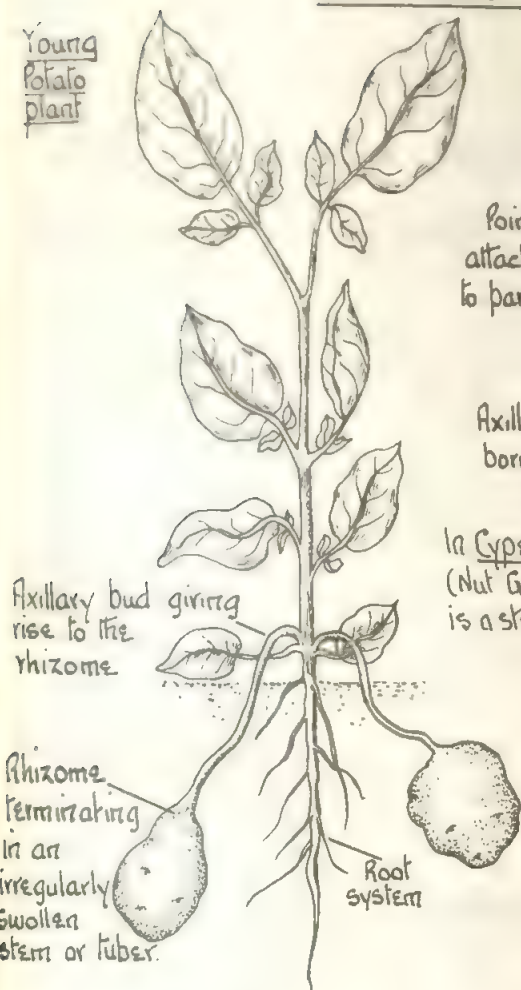 Young
Potato
plant
to
Axill
In
(Nut G
is a st
Axillary bud giving
rise to the
rhizome
Rhizome
terminating
in an
irregularly
swollen
stem or tuber.
Root
system